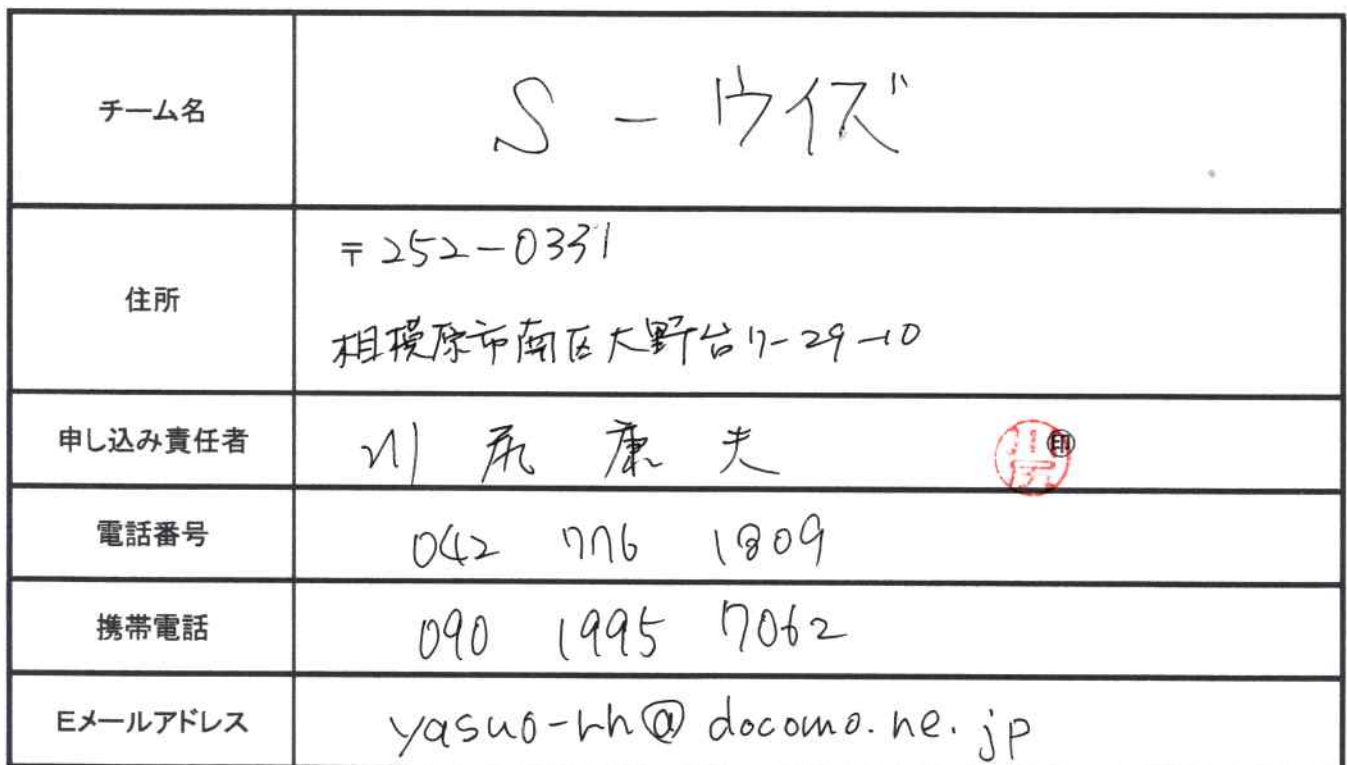 チーム名
S-ウイズ
住所
〒252-0331
相模原市南区大野台7-29-10
申し込み責任者
川尻康夫 印
電話番号
042 776 1809
携帯電話
090 1995 7062
Eメールアドレス
yasuo-hh@docomo.ne.jp